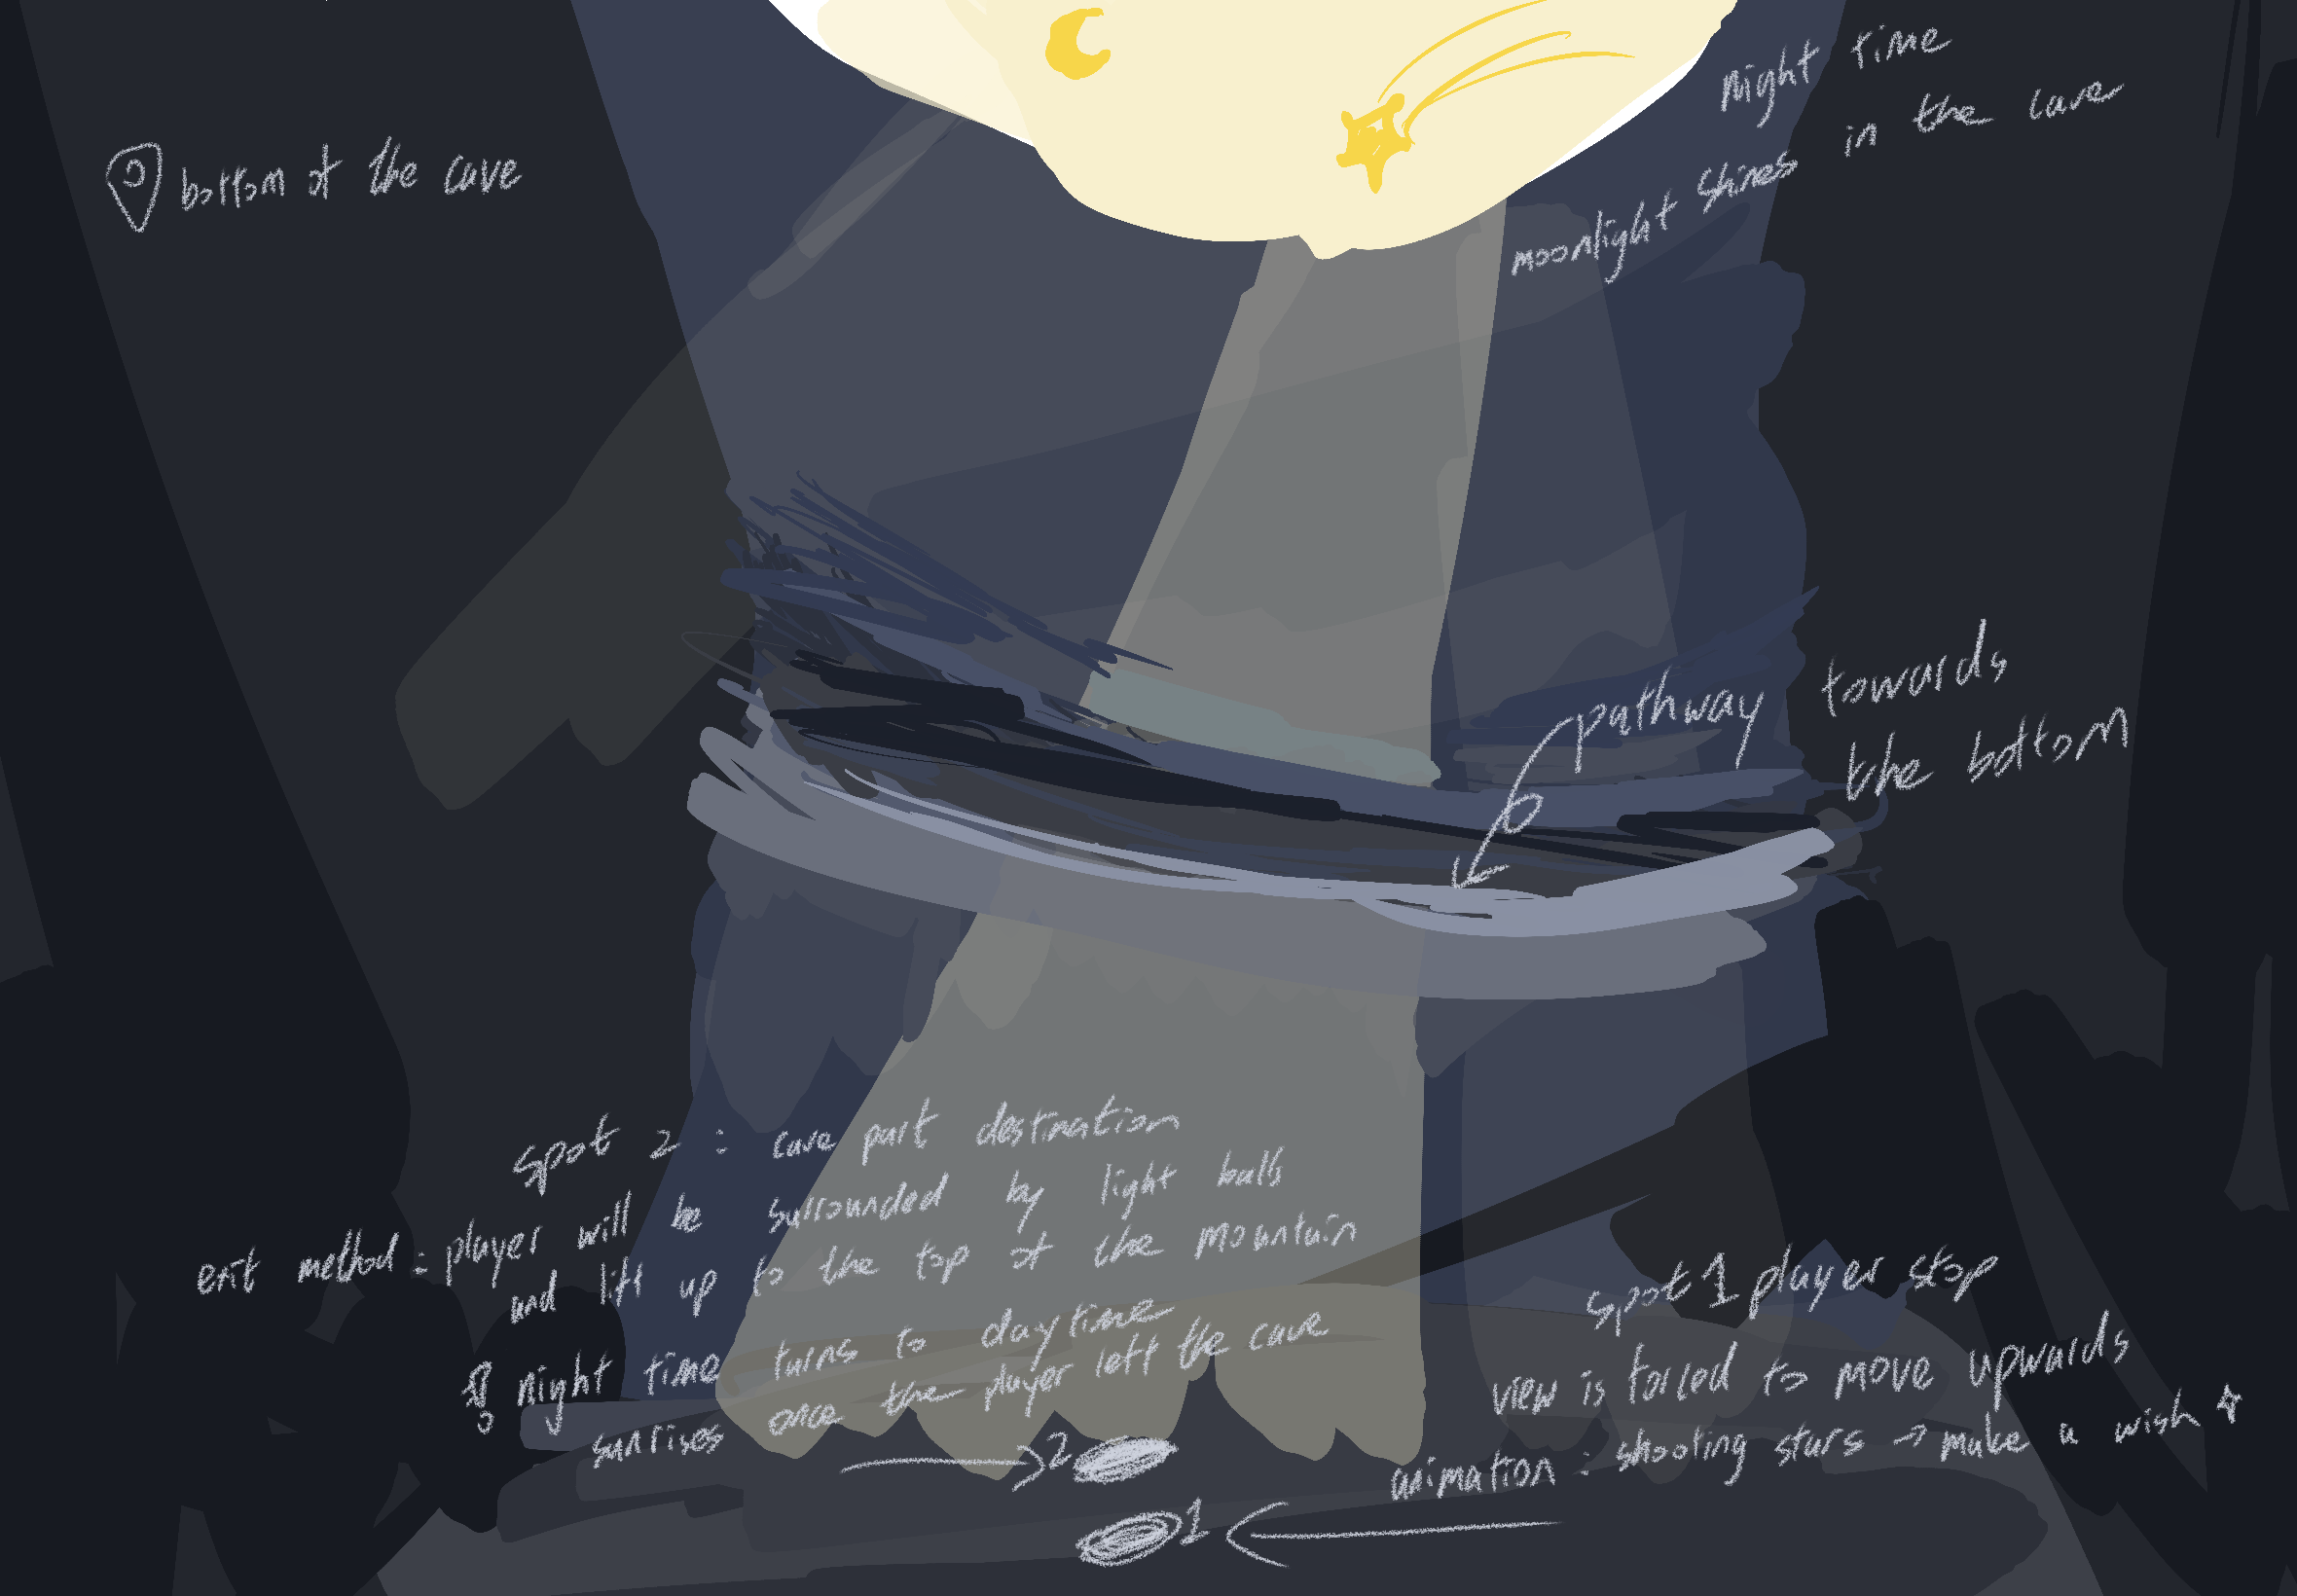 night time
moonlight shines in the cave
bottom of the cave
pathway towards
the bottom
spot 2 : cave part destination
exit method : player will be surrounded by light balls
and lift up to the top of the mountain
! night time turns to daytime
sunrises once the player left the cave
2
spot 1 player stop
view is forced to move upwards
animation : shooting stars → make a wish
1